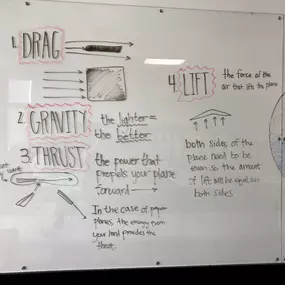 1. DRAG
2. GRAVITY
the lighter =
the better
3. THRUST
the power that
propels your plane
forward
In the case of paper
planes, the energy from
your hand provides the
thrust.
4. LIFT
the force of the
air that lifts the plane
both sides of the
plane need to be
even so the amount
of lift will be equal on
both sides